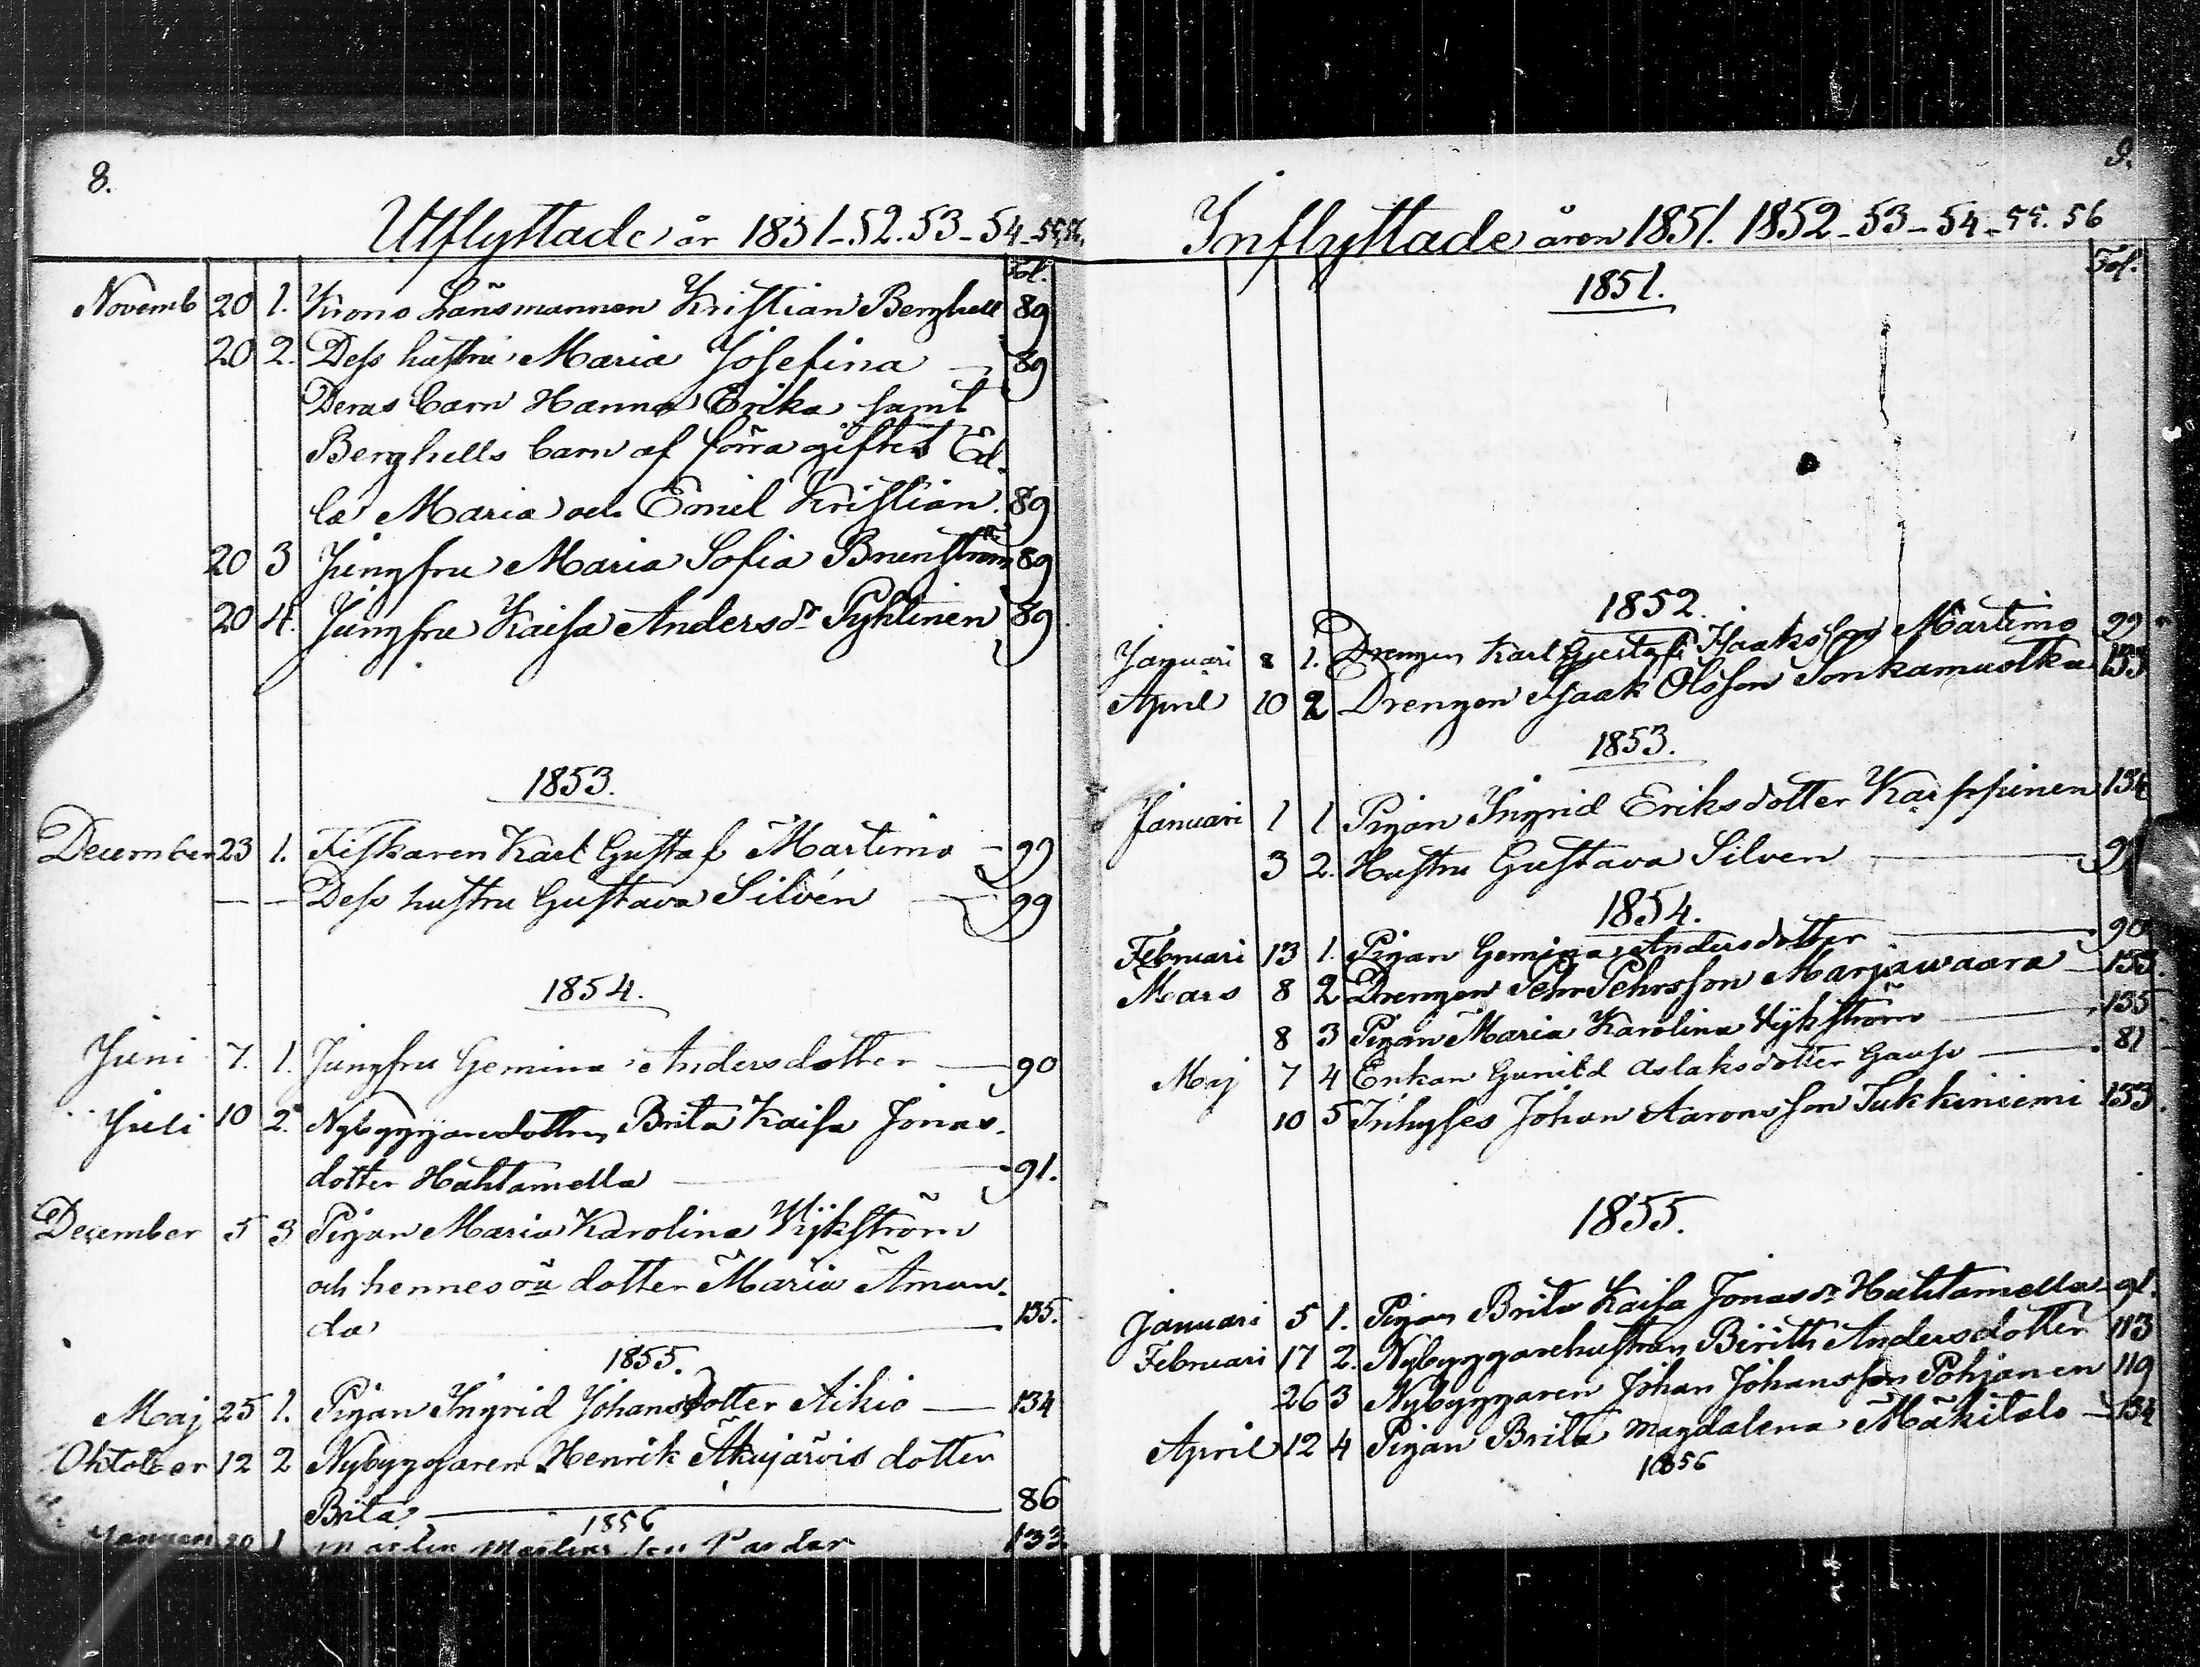 8.
Utflyttade år 1851-52.53-54-55.56.
Fol.
Novemb 20 1. Krono Länsmannen Kristian Berghell 89
20 2. Dess hustru Maria Josefina 89
Deras barn Hanna Erika samt
Berghells barn af förra giftet Ed-
la Maria och Emil Kristian. 89
20 3 Jungfru Maria Sofia Brunström 89
20 4. Jungfru Kaisa Andersdr Pyhtinen 89
1853.
December 23 1. Fiskaren Karl Gustaf Martimo - 99
- - Dess hustru Gustava Silvén - 99
1854.
Juni 7. 1. Jungfru Gemina Andersdotter - 90
Juli 10 2. Nybyggaredottren Brita Kaisa Jonas-
dotter Hahtamella - 91.
December 5 3 Pigan Maria Karolina Vijkström
och hennes oä dotter Maria Aman-
da - 135.
1855.
Maj 25 1. Pigan Ingrid Johansdotter Aikio - 134
Oktober 12 2 Nybyggaren Henrik Akujärvis dotter
Brita - 86
1856
Januari 20 1 133
9.
Inflyttade åren 1851. 1852-53-54-55.56
Fol.
1851.
1852.
Januari 8 1. Drengen Karl Gustaf Isaksson Martimo 99
April 10 2 Drengen Isaak Olsson Sonkamuotka 133
1853.
Januari 1 1 Pigan Ingrid Eriksdotter Karppinen 134
3 2. Hustru Gustava Silven - 99
1854.
Februari 13 1. Pigan Gemina Andersdotter - 90
Mars 8 2 Drengen Pehr Pehrsson Marjawaara - 153.
8 3 Pigan Maria Karolina Vijkström - 135
Maj 7 4 Enkan Gunild Aslaksdotter Gaup - 81
10 5 Inhyses Johan Aaronsson Tukkiniemi 133.
1855.
Januari 5 1. Pigan Brita Kaisa Jonasdr Hahtamella 91.
Februari 17 2. Nybyggarehustrun Birith Andersdotter 113
26 3 Nybyggaren Johan Johansson Pohjanen 119
April 12 4 Pigan Brita Magdalena Mäkitalo - 134
1856